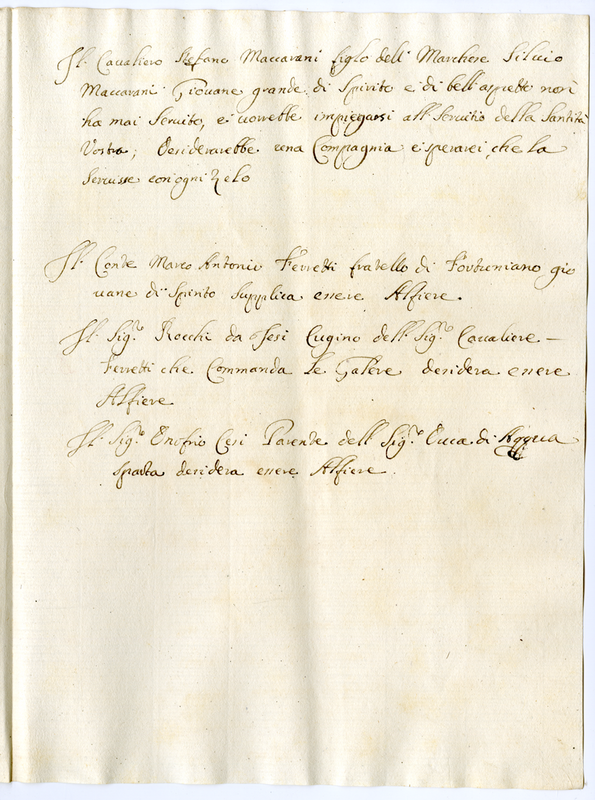 Il Cavaliero Stefano Maccarani figlo dell Marchese Silvio
Maccarani Giovane grande di Spirito e di bell aspetto non
ha mai Servito, e vorrebbe impiegarsi all Servitio della Santità
Vostra; Desiderarebbe una Compagnia e sperarei, che la
Servisse con ogni Zelo
Il Conte Marco Antonio Ferretti fratello di Fortuniano gio
vane di Spirito supplica essere Alfiere.
Il Sigre Rocchi da Jesi Cugino dell Sigre Cavaliere –
Ferretti che Commanda le Galere desidera essere
Alfiere
Il Sigre Onofrio Cesi Parente dell Sigre Duca di Acqua
sparta desidera essere Alfiere.